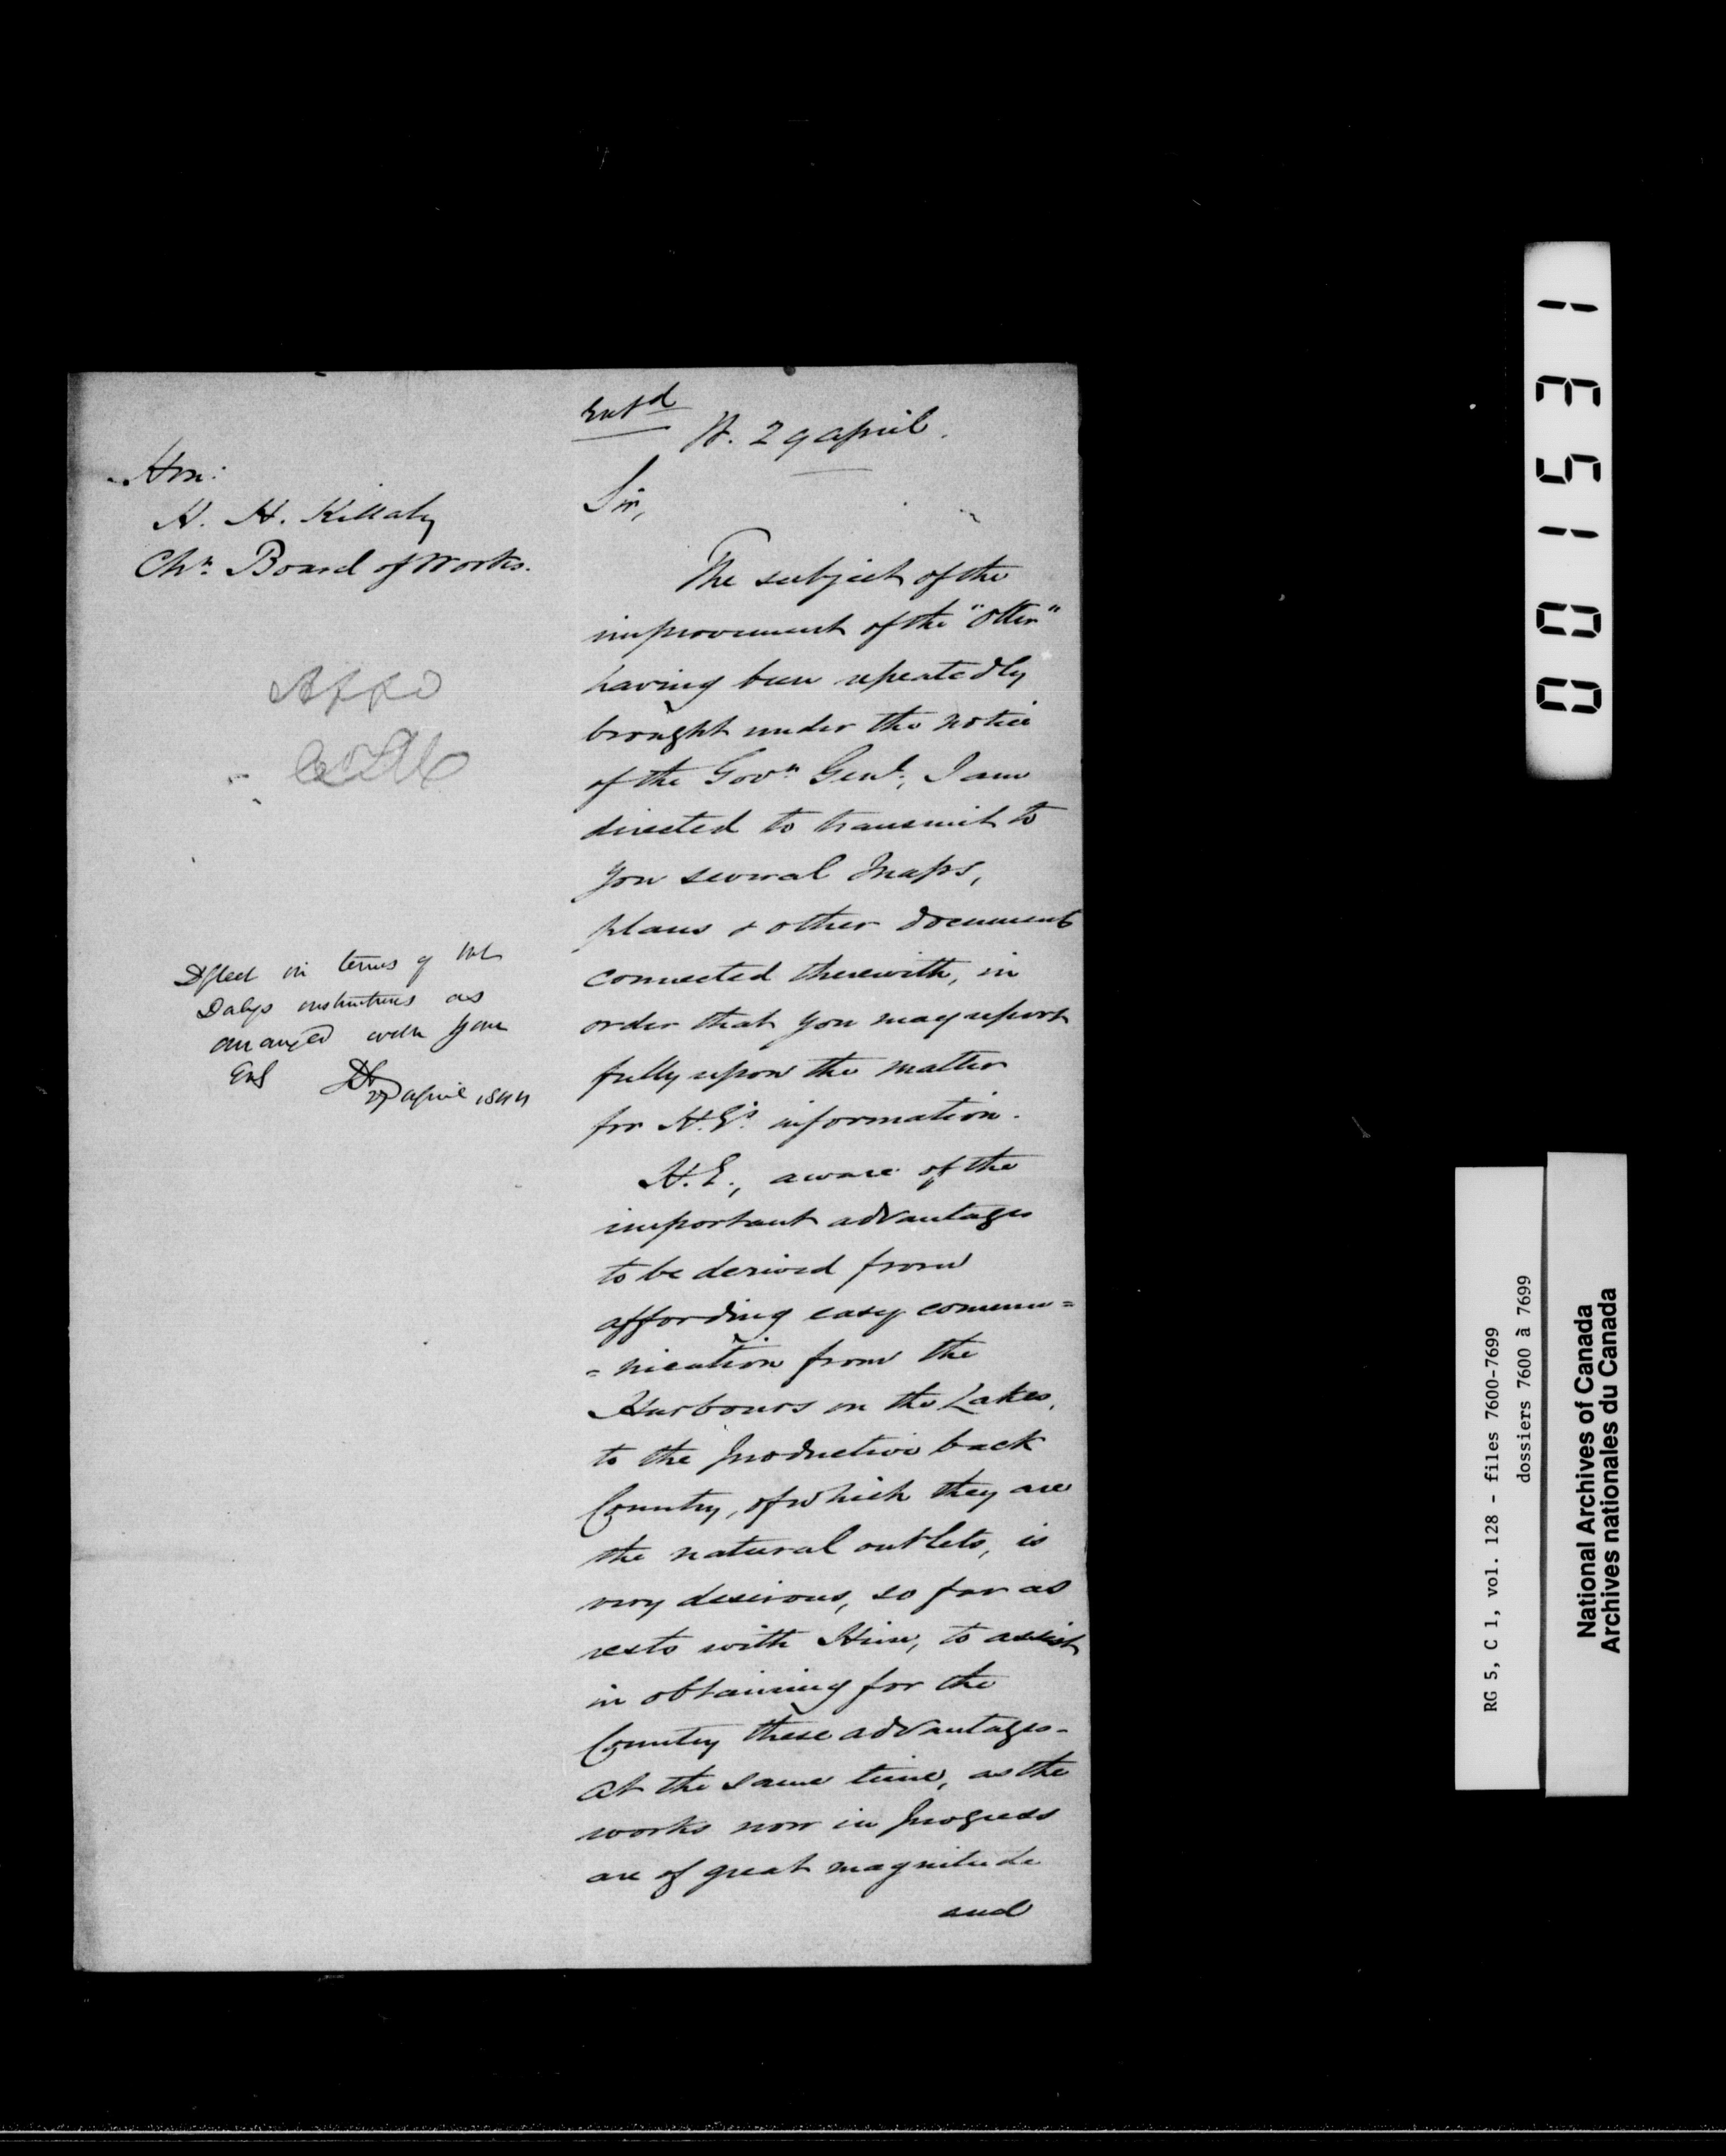 Entd
H. 29 April.
Hon:
H. H. Killaly
Chn. Board of Works.
Sir,
The subject of the
improvement of the "Otter"
having been repeatedly
brought under the notice
of the Govr. Genl., I am
directed to transmit to
you several Maps,
plans & other documents
connected therewith, in
order that you may report
fully upon the matter
for H.E's. information.
H.E., aware of the
important advantages
to be derived from
affording easy commu=
=nication from the
Harbours on the Lakes,
to the productive back
Country, of which they are
the natural outlets, is
very desirous, so far as
rests with Him, to assist
in obtaining for the
Country these advantages -
at the same time, as the
works now in progress
are of great magnitude
and
Appd
Dfted in terms of Mr
Dalys instructions as
arranged with your
27 April 1844
001531
RG 5, C 1, vol. 128 - files 7600-7699
dossiers 7600 à 7699
National Archives of Canada
Archives nationales du Canada